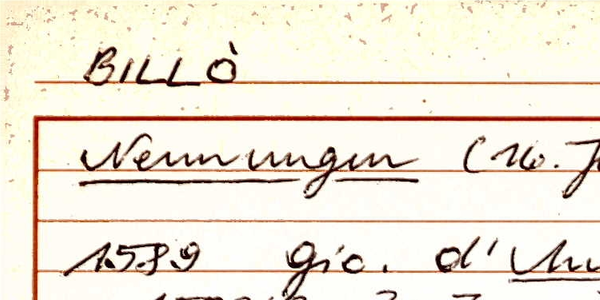 BILLÒ
Nennungen (16. J
1589 Gio. d'